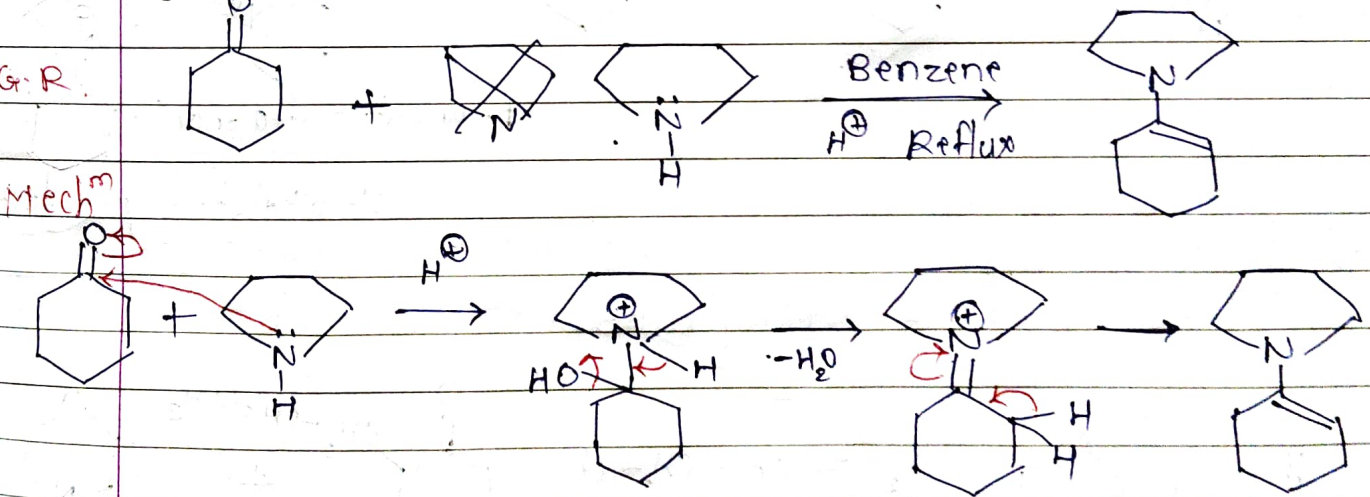 O
G.R. + N N Benzene N
H H⊕ Reflux
Mech^m
O + N H H⊕ ⊕ N H HO -H₂O ⊕ N H H N